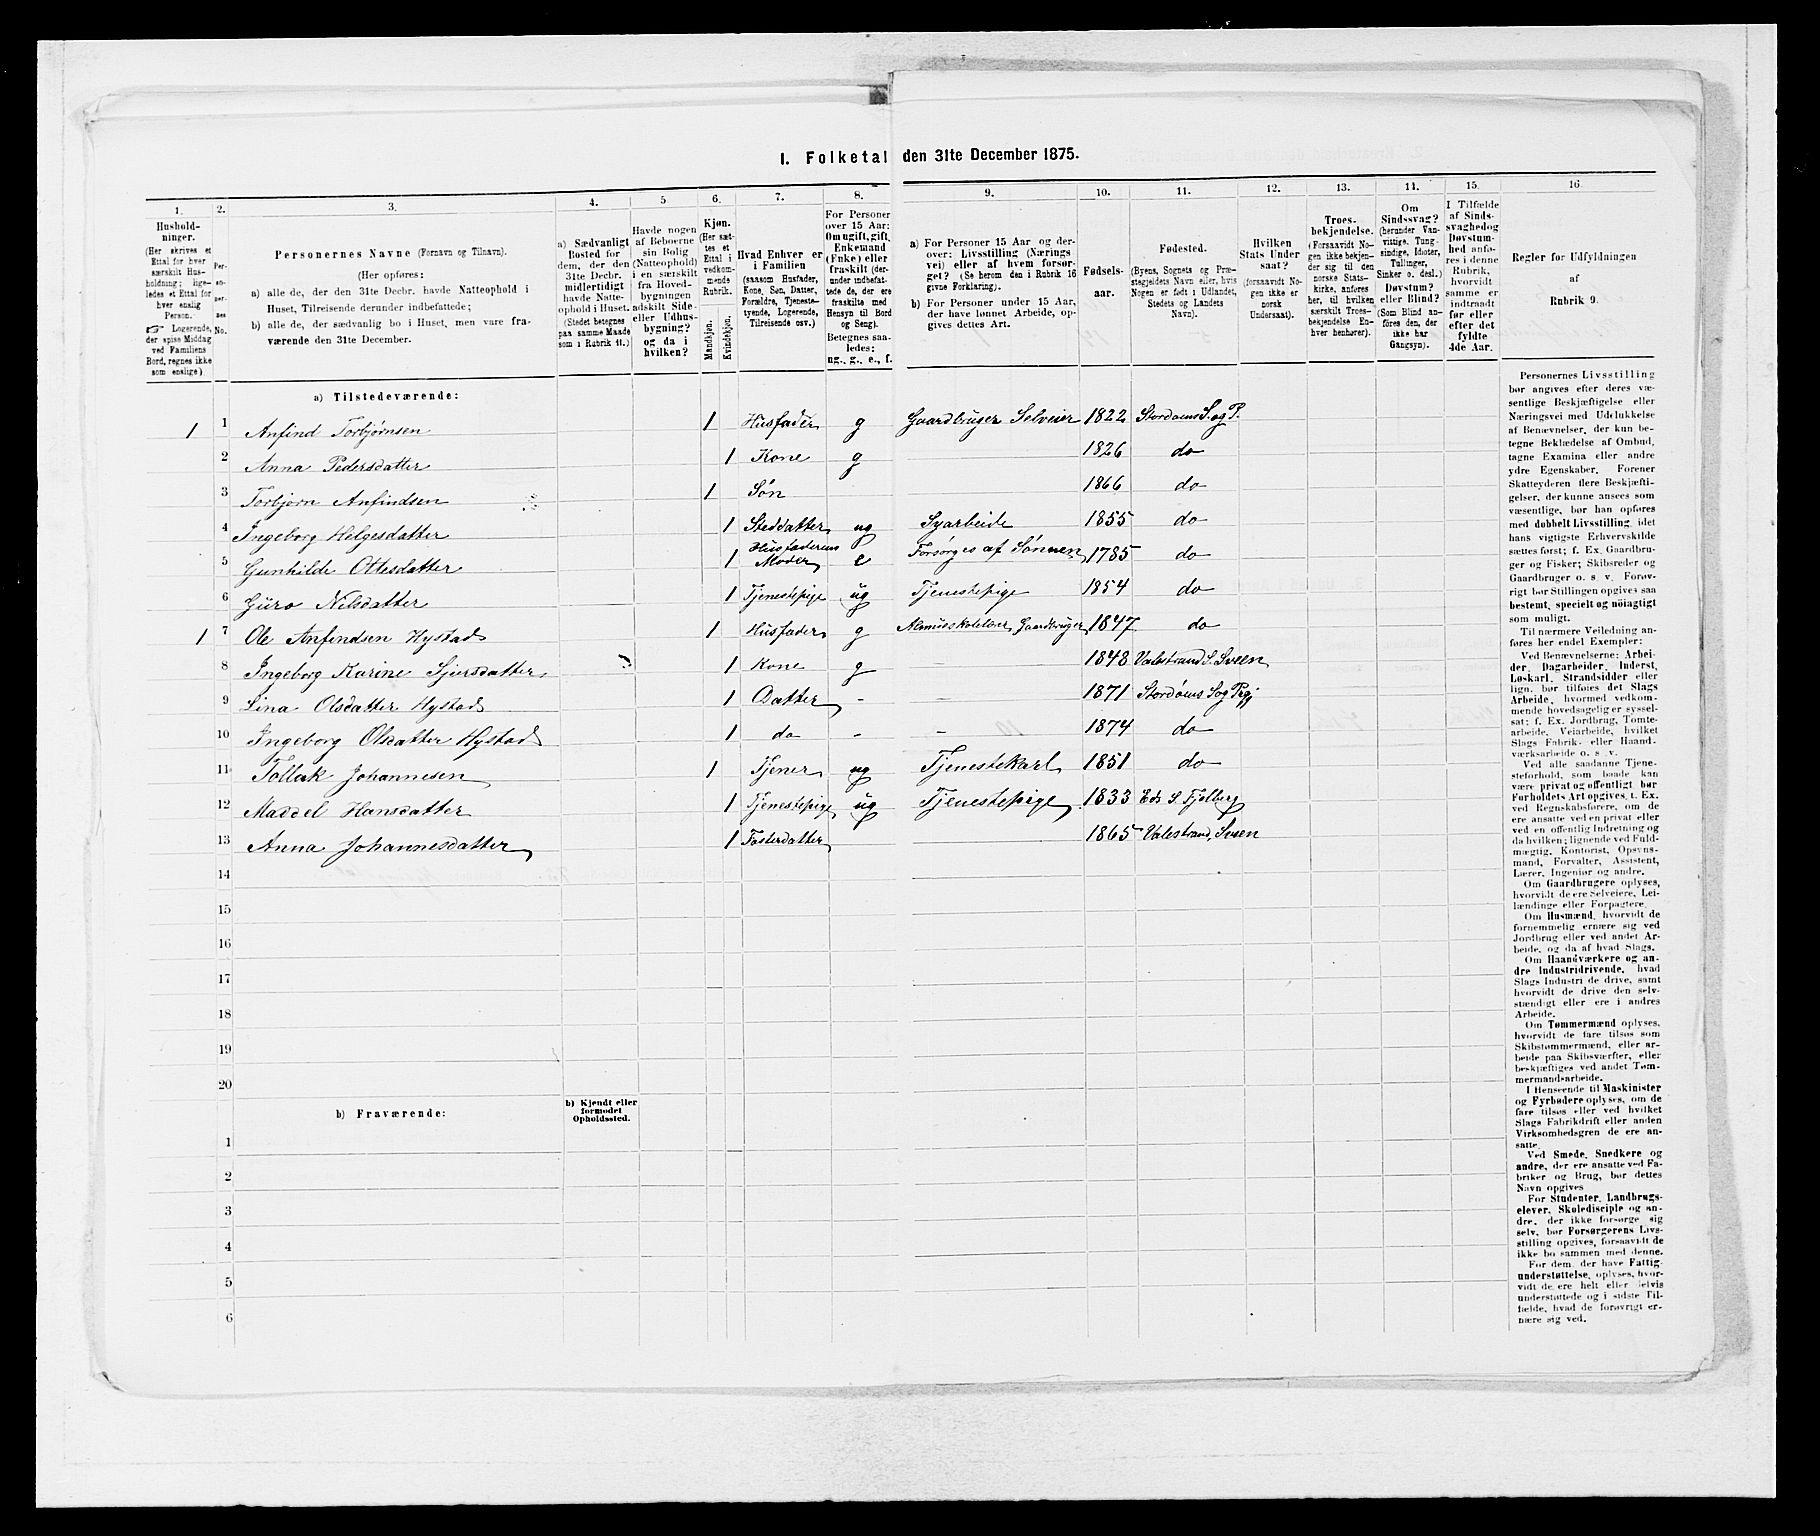 I. Folketal den 31te December 1875.
1. 2. 3. 4. 5 6. 7. 8. 9. 10. 11. 12. 13. 14. 15. 16.
Hushold-
ninger.
(Her skrives et
Ettal for hver
særskilt Hus-
holdning; lige-
ledes et Ettal for
hver enslig
Person.
☞ Logerende,
der spise Middag
ved Familiens
Bord, regnes ikke
som enslige).
Per-
so-
ner-
nes
No.
Personernes Navne (Fornavn og Tilnavn).
(Her opføres:
a) alle de, der den 31te Decbr. havde Natteophold i
Huset, Tilreisende derunder indbefattede;
b) alle de, der sædvanlig bo i Huset, men vare fra-
værende den 31te December.
a) Sædvanligt
Bosted for
dem, der den
31te Decbr.
midlertidigt
havde Natte-
ophold i Huset.
(Stedet betegnes
paa samme Maade
som i Rubrik 11.)
Havde nogen
af Beboerne
sin Bolig
(Natteophold)
i en særskilt
fra Hoved-
bygningen
adskilt Side-
eller Udhus-
bygning?
og da i
hvilken?
Kjøn.
(Her sæt-
tes et
Ettal i
vedkom-
mende
Rubrik.
Mandkjøn.
Kvindekjøn.
Hvad Enhver er
i Familien
(saasom Husfader,
Kone, Søn, Datter,
Forældre, Tjeneste-
tyende, Logerende,
Tilreisende osv.)
For Personer
over 15 Aar:
Om ugift, gift,
Enkemand
(Enke) eller
fraskilt (der-
under indbefat-
tede de, der ere
fraskilte med
Hensyn til Bord
og Seng).
Betegnes saa-
ledes:
ug., g., e., f.
a) For Personer 15 Aar og der-
over: Livsstilling (Nærings
vei) eller af hvem forsør-
get? (Se herom den i Rubrik 16
givne Forklaring).
b) For Personer under 15 Aar,
der have lønnet Arbeide, op-
gives dettes Art.
Fødsels-
aar.
Fødested.
(Byens, Sognets og Præ-
stegjeldets Navn eller, hvis
Nogen er født i Udlandet,
Stedets og Landets
Navn).
Hvilken
Stats Under
saat?
(forsaavidt No-
gen ikke er
norsk
Undersaat).
Troes-
bekjendelse.
(Forsaavidt No-
gen ikke bekjen-
der sig til den
norske Stats-
kirke, anføres
her, til hvilken
særskilt Troes-
bekjendelse En-
hver henhører).
Om
Sindssvag?
(herunder Van-
vittige, Tung-
sindige, Idioter,
Tullinger,
Sinker o. desl.)
Døvstum?
eller Blind?
(Som Blind an-
føres den, der
ikke har
Gangsyn).
I Tilfælde
af Sinds-
svaghed og
Døvstum-
hed anfø-
res i denne
Rubrik,
hvorvidt
samme er
indtraadt
før eller
efter det
fyldte
4de Aar.
Regler for Udfyldningen
af
Rubrik 9.
a) Tilstedeværende:
1 1 Anfind Torbjørnsen 1 Husfader g Gaardbruger Selveier 1822 Stordøens S. og P.
2 Anna Pedersdatter 1 Kone g 1826 do
3 Torbjørn Anfindsen 1 Søn 1866 do
4 Ingeborg Helgesdatter 1 Steddatter ug Syarbeide 1855 do
5 Gunhilde Ottesdatter 1 Husfaderens Moder e Forsørges af Sønnen 1785 do
6 Guro Nilsdatter 1 Tjenestepige ug Tjenestepige 1854 do
1 7 Ole Anfindsen Hystad 1 Husfader g Almueskolelærer Gaardbruger 1847 do
8 Ingeborg Karine Sjursdatter 1 Kone g 1848 Valestrand S. Sveen
9 Sina Olsdatter Hystad 1 Datter - - 1871 Stordøens S og Prgj
10 Ingeborg Olsdatter Hystad 1 do - - 1874 do
11 Tollak Johannesen 1 Tjener ug Tjenestekarl 1851 do
12 Maddel Hansdatter 1 Tjenestepige ug Tjenestepige 1833 S. Fjelberg
13 Anna Johannesdatter 1 Fosterdatter 1865 Valestrand, Sveen
14
15
16
17
18
19
20
b) Fraværende:
b) Kjendt eller
formodet
Opholdssted.
1
2
3
4
5
6
Personernes Livsstilling
bør angives efter deres væ-
sentlige Beskjæftigelse eller
Næringsvei med Udelukkelse
af Benævnelser, der kun be-
tegne Beklædelse af Ombud,
tagne Examina eller andre
ydre Egenskaber. Forener
Skatteyderen flere Beskjæfti-
gelser, der kunne ansees som
væsentlige, bør han opføres
med dobbelt Livsstilling, idet
hans vigtigste Erhvervskilde
sættes først; f. Ex. Gaardbru-
ger og Fisker; Skibsreder og
Gaardbruger o. s. v. Forøv-
rigt bør Stillingen opgives saa
bestemt, specielt og nöiagtigt
som muligt.
Til nærmere Veiledning an-
føres her endel Exempler:
Ved Benævnelserne: Arbei-
der, Dagarbeider, Inderst,
Løskarl, Strandsidder eller
lign. bør tilføies det Slags
Arbeide, hvormed vedkom-
mende hovedsagelig er syssel-
sat; f. Ex. Jordbrug, Tomte-
arbeide, Veiarbeide, hvilket
Slags Fabrik- eller Haand-
værksarbeide o. s. v.
Ved alle saadanne Tjene-
steforhold, som baade kan
være privat og offentligt, bør
Forholdets Art opgives, t. Ex.
ved Regnskabsførere, om de
ere ansatte ved en privat eller
ved en offentlig Indretning og
da hvilken; lignende ved Fuld-
mægtig, Kontorist, Opsyns-
mand, Forvalter, Assistent,
Lærer, Ingeniør og andre.
Om Gaardbrugere oplyses,
hvorvidt de ere Selveiere, Lei-
lændinge eller Forpagtere.
Om Husmænd, hvorvidt de
fornemmelig ernære sig ved
Jordbrug eller ved andet Ar-
beide, og da af hvad Slags.
Om Haandværkere og an-
dre Industridrivende, hvad
Slags Industri de drive, samt
hvorvidt de drive den selv-
stændigt eller ere i andres
Arbeide.
Om Tømmermænd oplyses,
hvorvidt de fare tilsøs som
Skibstømmermænd, eller ar-
beide paa Skibsværfter, eller
beskjæftiges ved andet Tøm-
mermandsarbeide.
I Henseende til Maskinister
og Fyrbødere oplyses, om de
fare tilsøs eller ved hvilket
Slags Fabrikdrift eller anden
Virksomhedsgren de ere an-
satte
Ved Smede, Snedkere og
andre, der ere ansatte ved Fa-
briker og Brug, bør dettes
Navn opgives
For Studenter, Landbrugs-
elever, Skoledisciple og an-
dre, der ikke forsørge sig
selv, bør Forsørgerens Livs-
stilling opgives, forsaavidt de
ikke bo sammen med denne.
For dem, der have Fattig-
understøttelse, oplyses, hvor-
vidt de ere helt eller delvis
understøttede og i sidste Til-
fælde, hvad de forøvrigt er-
nære sig ved.